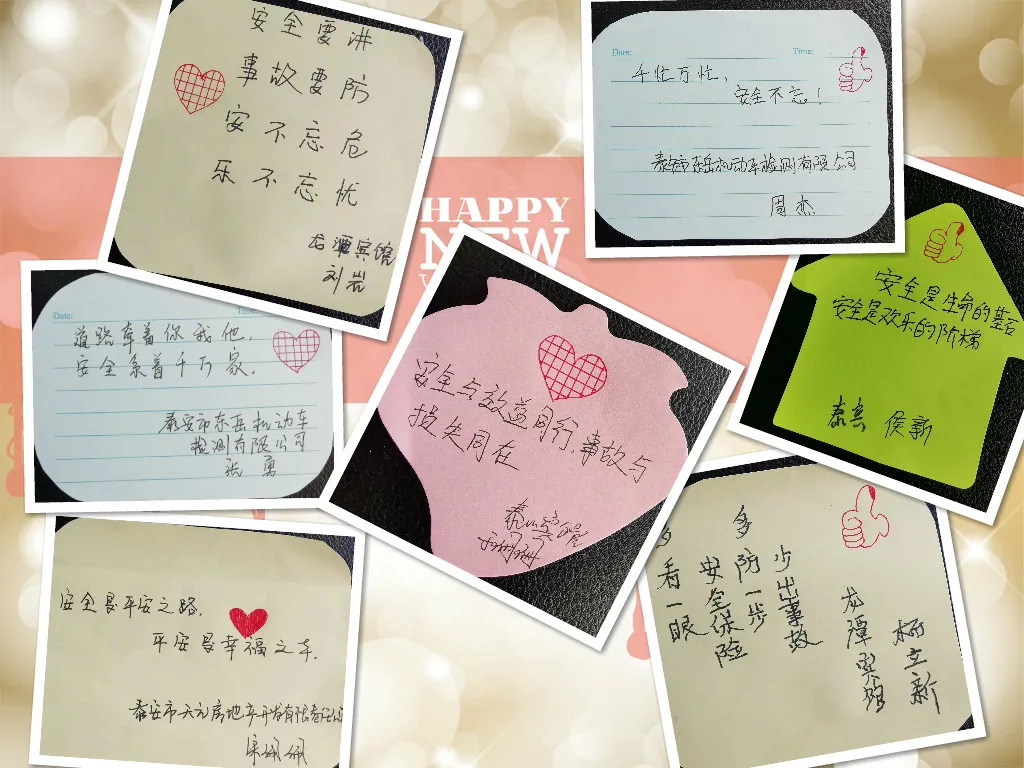 安全要讲
事故要防
安不忘危
乐不忘忧
龙潭宾馆
刘岩
Date:
Time:
千忙万忙，
安全不忘！
泰安市东岳机动车检测有限公司
周杰
HAPPY
NEW
Date:
道路牵着你我他，
安全系着千万家。
泰安市东岳机动车
检测有限公司
张勇
安全与效益同行，事故与
损失同在
泰山宾馆
安全是生命的基石
安全是欢乐的阶梯
侯新
安全是平安之路，
平安是幸福之车。
泰安市天元房地产开发有限责任公司
多看一眼
安全保险
多防一步
少出事故
龙潭宾馆
杨立新